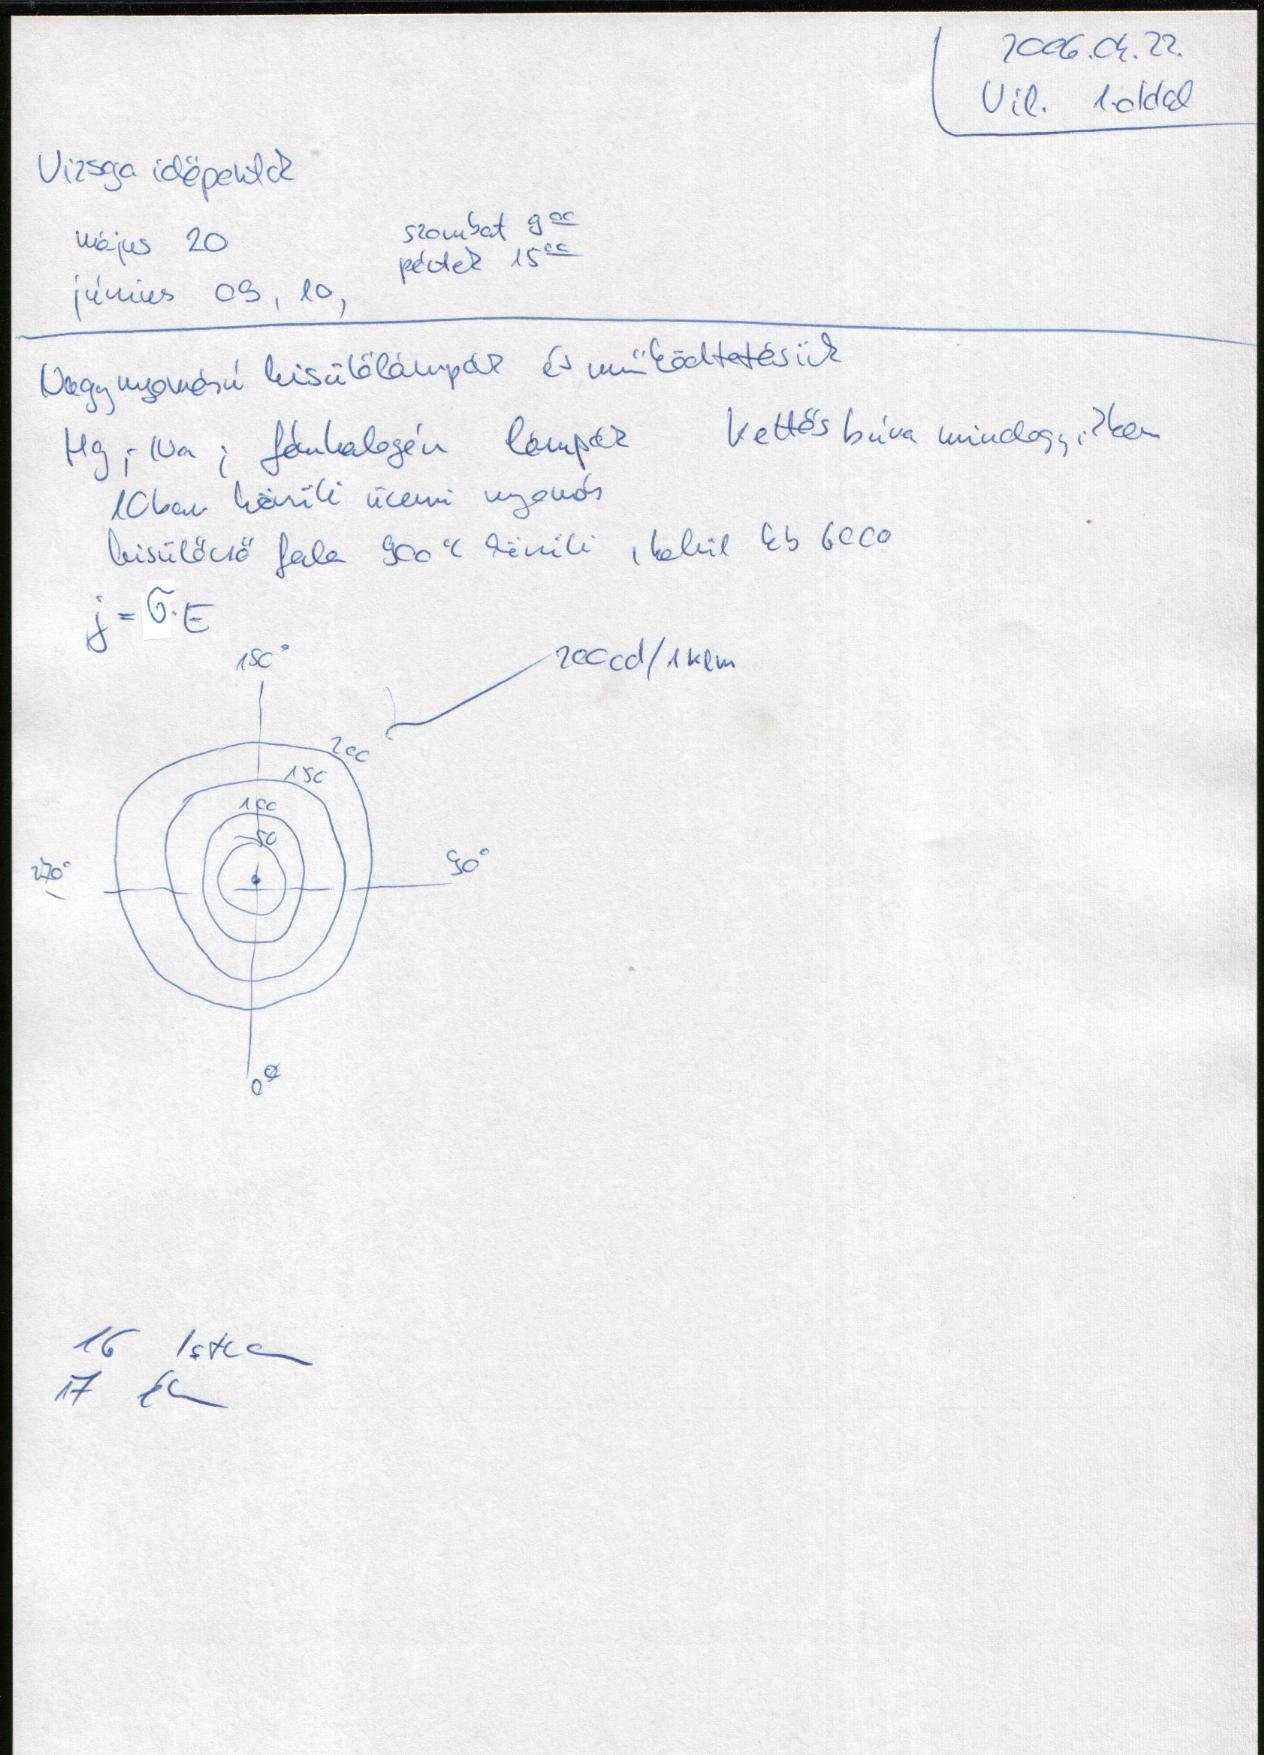 2006.04.22.
Vil. 1.oldal
Vizsga időpontok
május 20 szombat 9 00
június 09, 10, péntek 15 00
Nagynyomású kisülőlámpák és működtetésük
Hg ; Na ; fémhalogén lámpák Kettős búra mindegyikben
10bar körüli üzemi nyomás
kisülőcső fala 900°C körüli , belül kb 6000
j = σ · E
180°
200cd/1klm
200
150
100
50
270°
90°
0°
16
17